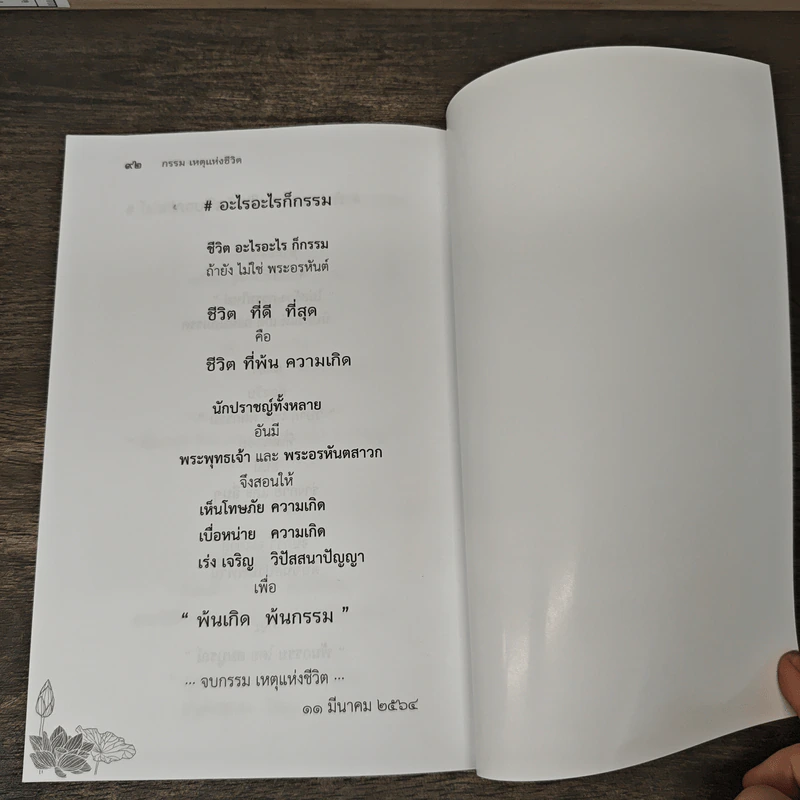 ๙๒ กรรม เหตุแห่งชีวิต
# อะไรอะไรก็กรรม
ชีวิต อะไรอะไร ก็กรรม
ถ้ายัง ไม่ใช่ พระอรหันต์
ชีวิต ที่ดี ที่สุด
คือ
ชีวิต ที่พ้น ความเกิด
นักปราชญ์ทั้งหลาย
อันมี
พระพุทธเจ้า และ พระอรหันตสาวก
จึงสอนให้
เห็นโทษภัย ความเกิด
เบื่อหน่าย ความเกิด
เร่ง เจริญ วิปัสสนาปัญญา
เพื่อ
“ พ้นเกิด พ้นกรรม ”
... จบกรรม เหตุแห่งชีวิต ...
๑๑ มีนาคม ๒๕๖๔